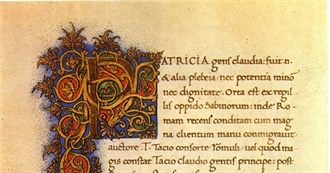 PATRICIA gens claudia: fuit n
& alia plebeia: nec potentia mino
nec dignitate. Orta est ex regil
lis oppido Sabinorum: inde Ro
mam recens conditam cum mag
na clientum manu conmigravit
auctore T. Tacio consorte Romuli: vel quod ma
gis constat Tacio claudio gentis principe: post